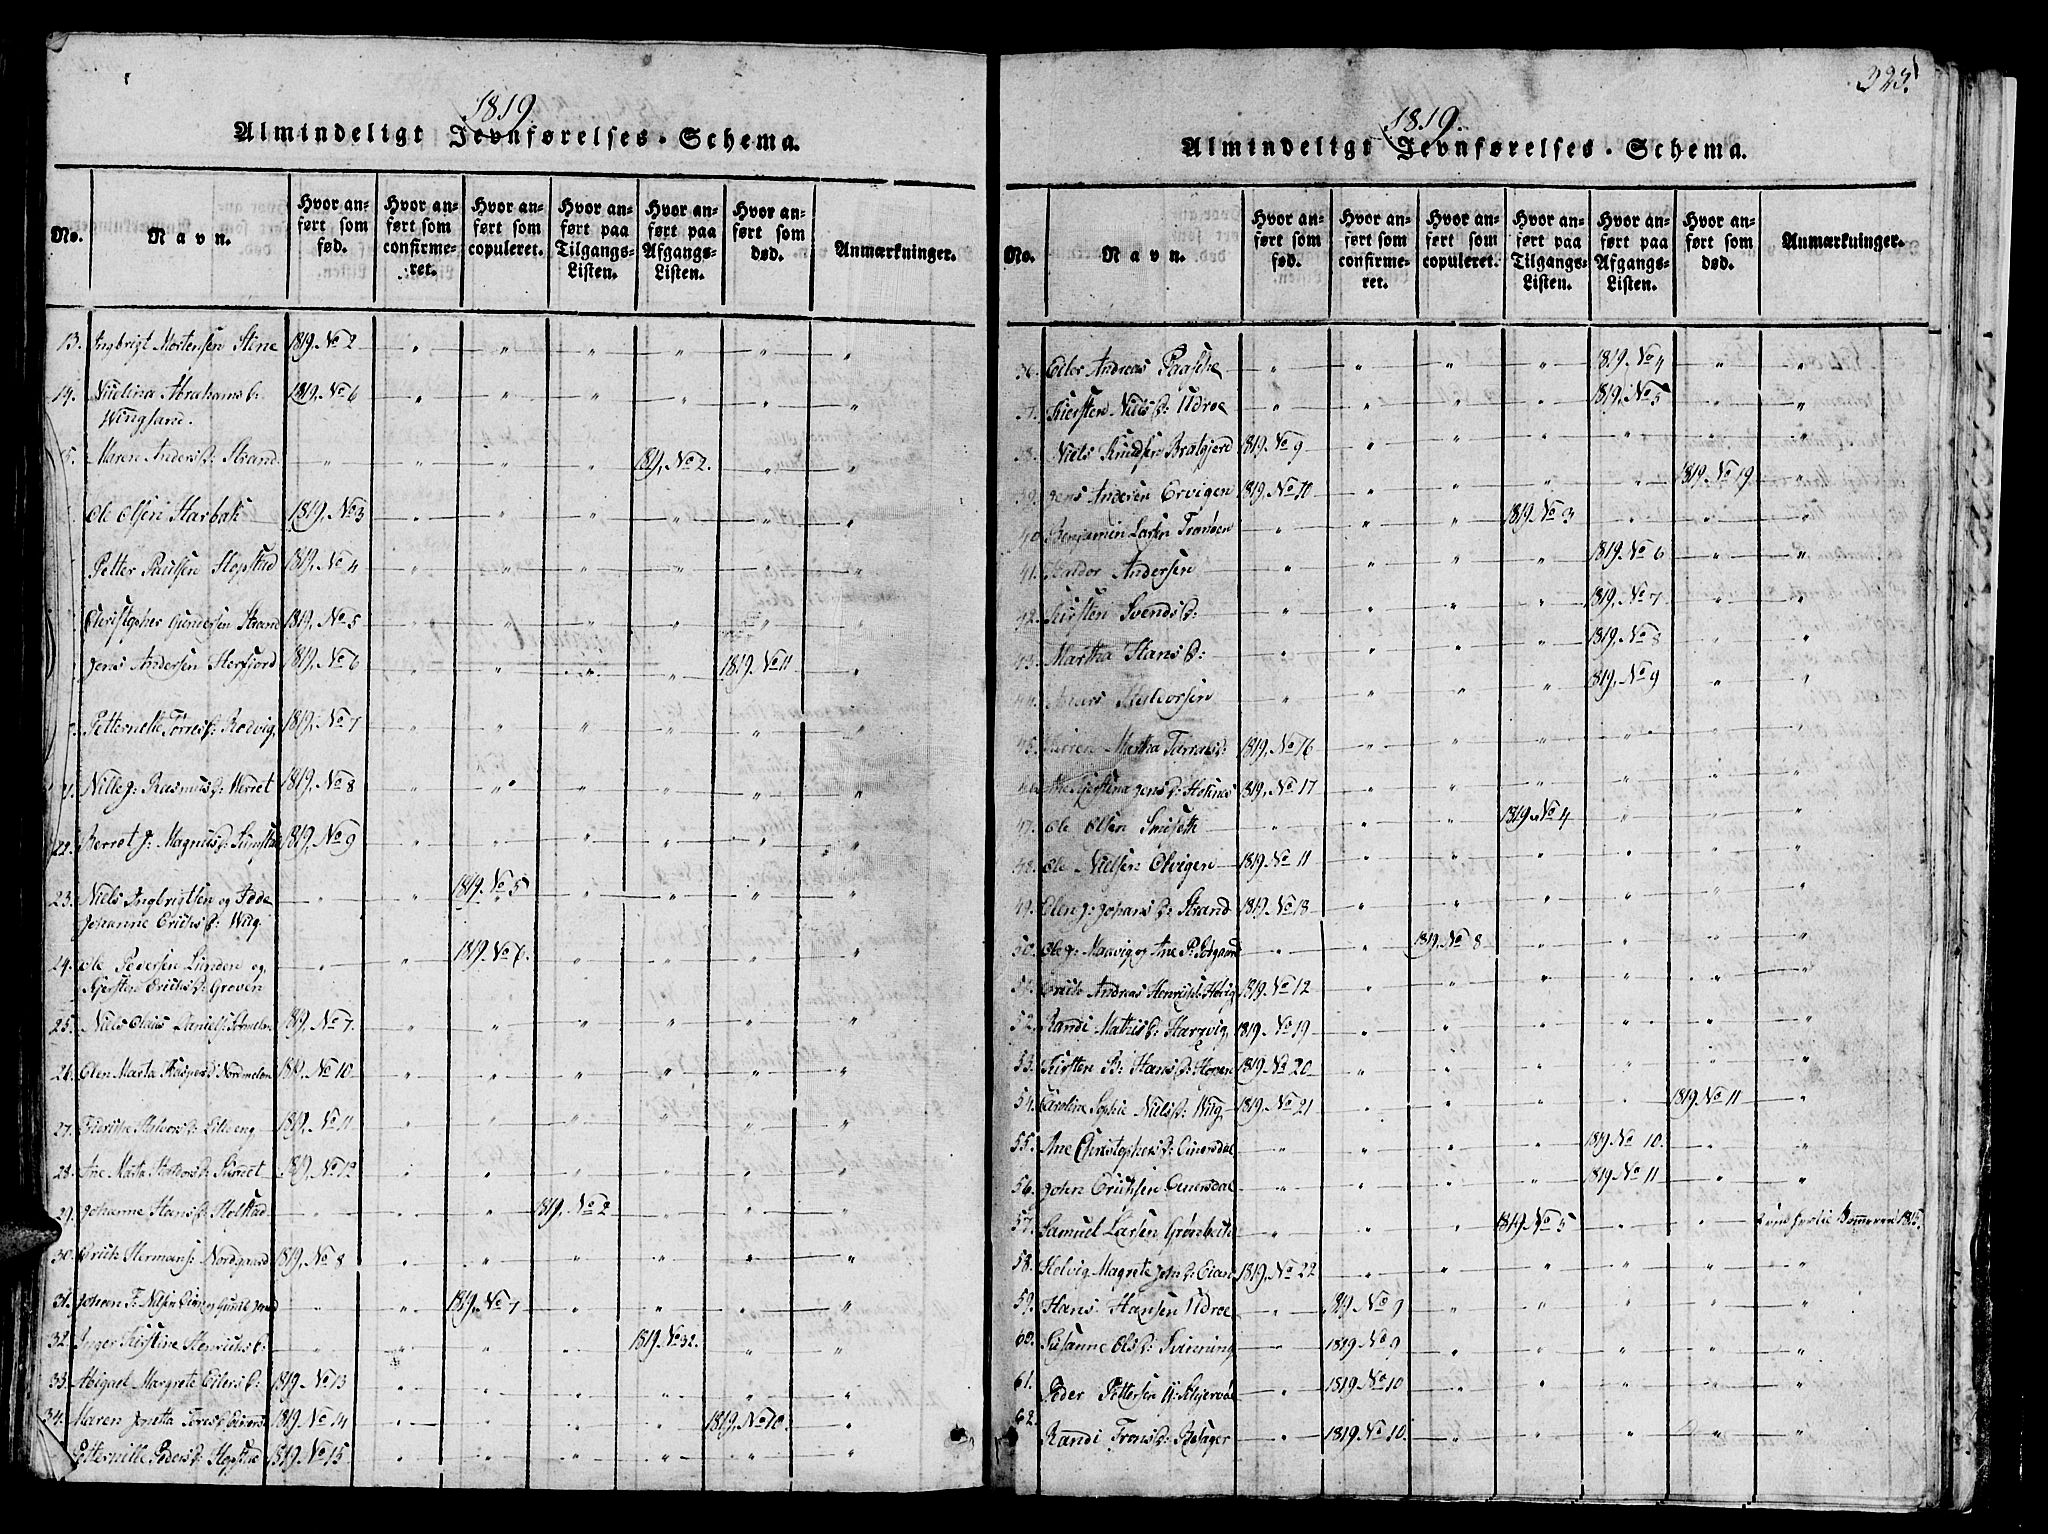 1819
Almindeligt Jevnførelses-Schema.
No. Navn. Hvor anført som fød. Hvor anført som confirmeret. Hvor anført som copuleret. Hvor anført paa Tilgangs-Listen. Hvor anført paa Afgangs-Listen. Hvor anført som død. Anmærkninger.
13. Ingbrigt Mortensen Stene 1819, No 2 " " " " " "
14. Abrahams D: 1819, No 6 " " " " " "
Wingsand.
15. Maren Anders D: Strand " " " " 1819, No 2. " "
Ole Olsen Harbak 1819, No 3 " " " " " "
Petter Paulsen Hopstad 1819, No 4 " " " " " "
Christopher Gundersen Strand 1819, No 5 " " " " " "
Jens Andersen Herfjord 1819, No 6 " " " " 1819. No 11 "
Petternelle Torres D: Bodvig 1819, No 7 " " " " " "
21. Rasmus D: Werret 1819, No 8 " " " " " "
22. Berret J: Magnus D: 1819, No 9 " " " " " "
23. Niels Ingbrigtsen og " " 1819. No 5 " " " "
Johanne Erichs D: Wug
24. Ole Pedersen Lunden og " " 1819. No 6. " " " "
Kjersten Erichs D: Groven
25. Niels Claus Daniels: 1819. No 7. " " " " " "
26. Elen Marta Kaspers D Nordmelan 1819. No 10 " " " " " "
27. Halvors D: 1819. No 11 " " " " " "
28. Ane Marta D: 1819, No 12 " " " " " "
29. Johanne Hans D: Holstad " " " 1819. No 2 " " "
30. Erick Hermans: Nordgaard 1819, No 8 " " " " " "
31. Johan F: Nilsen " " 1819. No 7 " " " "
32. Inger Kirstine Henrichs D: " " " " 1819. No 32. " "
33. Abigael Margrete Eilers D: 1819. No 13 " " " " " "
34. Maren Jonetta Tores D: 1819. No 14 " " " " 1819. No 10. "
Petternille Peders D: Hopstad 1819. No 15 " " " " " "
323.
1819.
Almindeligt Jevnførelses-Schema.
No. Navn. Hvor anført som fød. Hvor anført som confirmeret. Hvor anført som copuleret. Hvor anført paa Tilgangs-Listen. Hvor anført paa Afgangs-Listen. Hvor anført som død. Anmærkninger.
36. Eiler Andreas Paasche " " " " 1819. No 4 " "
37. Kiersten Niels D: Udroe " " " " 1819, No 5 " "
38. Niels Knudsen Bratgjerd 1819. No 9 " " " " " "
39. Jens Andersen Ervigen 1819. No 10 " " " " 1819. No 19 "
40. Benjamin Larsen Tranøen " " " 1819. No 3 " " "
41. Haldor Andersen " " " " 1819. No 6 " "
42. Kirsten Svends D: " " " " 1819, No 7 " "
43. Martha Hans D: " " " " 1819, No 8 " "
44. Anders Haldorsen " " " " 1819, No 9 " "
45. Karren Martha 1819, No 16 " " " " " "
46. Ane Kjerstina Jens D: 1819, No 17 " " " " " "
47. Ole Olsen " " " 1819. No 4 " " "
48. Ole Nielsen Olvigen 1819. No 11 " " " " " "
49. Elen J: Johans D: Strand 1819. No 18 " " " " " "
50. Ole J: og Ane P: " " 1819. No 8 " " " "
51. Erich Andreas Henrichs: 1819. No 12 " " " " " "
52. Randi Mathis D: Harsvig 1819. No 19 " " " " " "
53. Kirsten B: Hans D: Hoven 1819. No 20 " " " " " "
54. Caroline Sophie Niels D: Wug 1819. No 21 " " " " 1819. No 11 "
55. Ane Christophers D: Einersdal " " " " 1819. No 10. " "
56. John Erichsen Einersdal " " " " 1819. No 11 " "
57. Samuel Larsen " " " 1819. No 5 " " 1815.
58. Helvig Magrete John D: 1819. No 22 " " " " " "
59. Hans Hansen Udroe " 1819. No 9 " " " " "
60. Susanne Ols D: " 1819. No 9 " " " " "
61. Peder Pettersen " 1819. No 10 " " " " "
62. Randi Trons D: " 1819. No 10. " " " " "